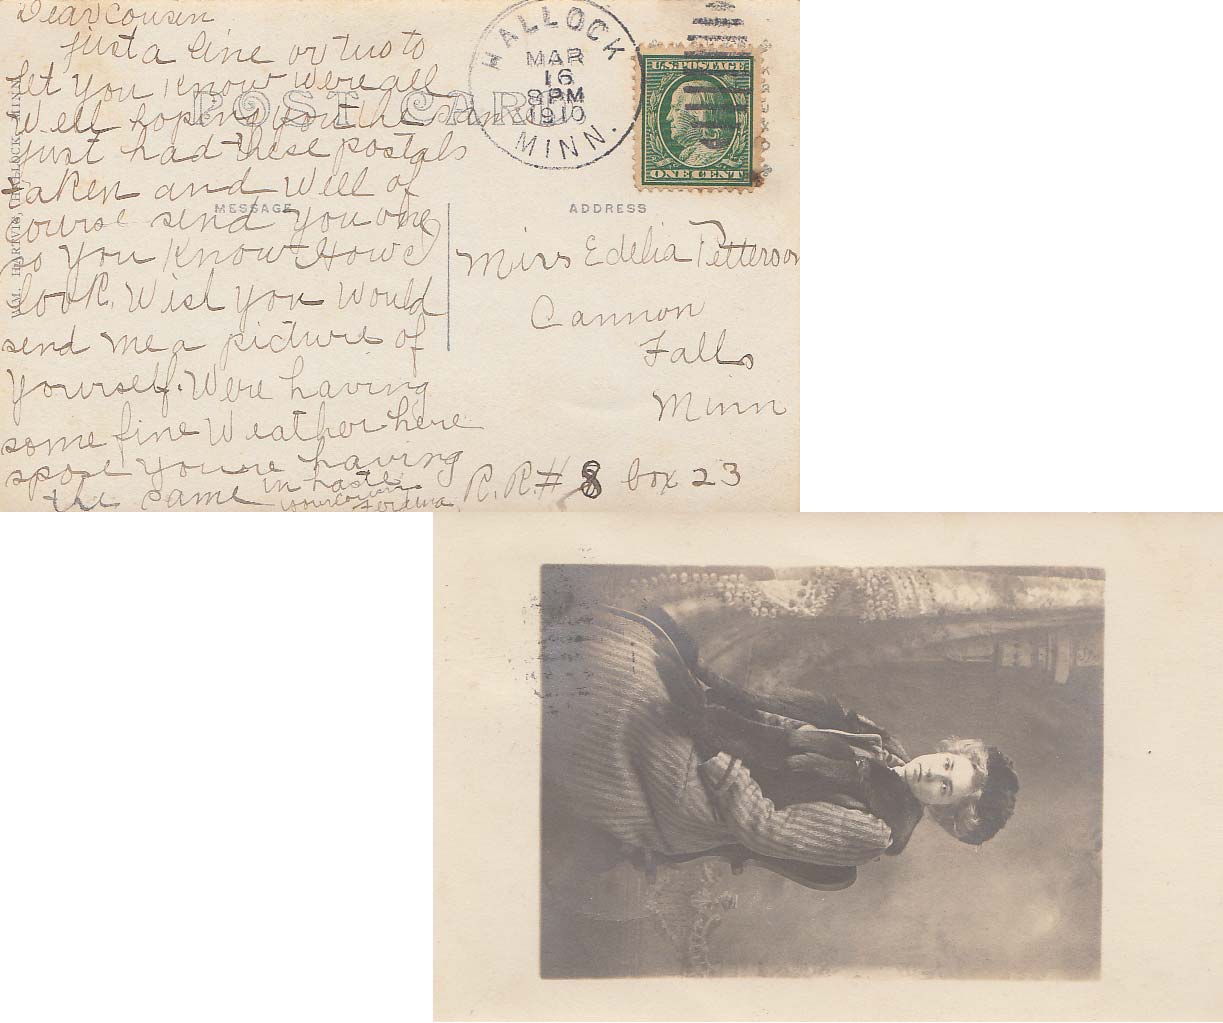 Dear Cousin
Just a line or two to
let you know we're all
well hoping you the same
Just had these postals
taken and will of
course send you one
so you know How I
look. Wish you would
send me a picture of
yourself. We're having
some fine weather here
spose you're having
the same in haste
your cousin
POST CARD
MESSAGE
ADDRESS
HALLOCK, MINN.
HALLOCK
MAR
16
8 PM
1910
MINN.
U.S. POSTAGE
ONE CENT
Miss Edelia Petterson
Cannon
Falls
Minn
R.R.# 8 box 23